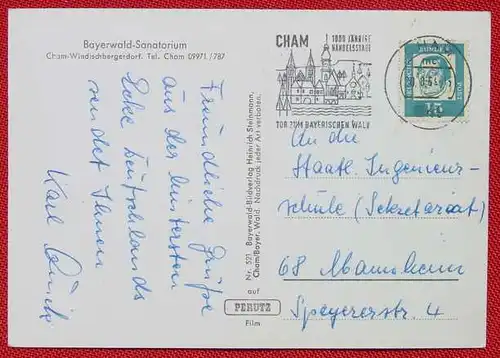 Bayerwald-Sanatorium
Cham-Windischbergerdorf. Tel. Cham (09971/787
Freundliche Grüße
aus der hintersten
Ecke Deutschlands
sendet Ihnen
Karl
Nr. 521. Bayerwald-Bildverlag Heinrich Steinmann,
Cham/Bayer. Wald. Nachdruck jeder Art verboten.
auf
PERUTZ
Film
CHAM
1000 JÄHRIGE
HANDELSSTADT
TOR ZUM BAYERISCHEN WALD
DEUTSCHE BUNDESPOST
15
An die
Staatl. Ingenieur-
schule (Sekretariat)
68 Mannheim
Speyererstr. 4